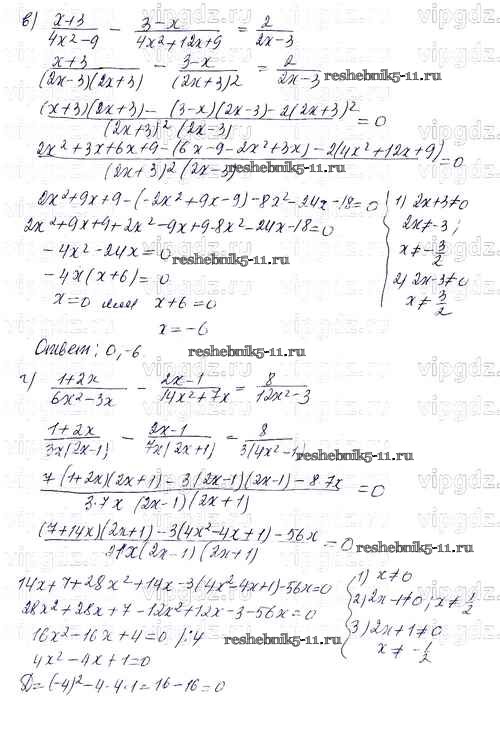 в) (x+3)/(4x²-9) - (3-x)/(4x²+12x+9) = 2/(2x-3)
(x+3)/((2x-3)(2x+3)) - (3-x)/((2x+3)²) = 2/(2x-3)
reshebnik5-11.ru
((x+3)(2x+3) - (3-x)(2x-3) - 2(2x+3)²)/((2x+3)²(2x-3)) = 0
(2x²+3x+6x+9-(6x-9-2x²+3x)-2(4x²+12x+9))/((2x+3)²(2x-3)) = 0
reshebnik5-11.ru
2x²+9x+9-(-2x²+9x-9)-8x²-24x-18=0
2x²+9x+9+2x²-9x+9-8x²-24x-18=0
-4x²-24x=0
reshebnik5-11.ru
-4x(x+6)=0
x=0 или x+6=0
x=-6
1) 2x+3≠0
2x≠-3;
x≠-3/2
2) 2x-3≠0
x≠3/2
Ответ: 0,-6.
reshebnik5-11.ru
г) (1+2x)/(6x²-3x) - (2x-1)/(14x²+7x) = 8/(12x²-3)
(1+2x)/(3x(2x-1)) - (2x-1)/(7x(2x+1)) = 8/(3(4x²-1))
reshebnik5-11.ru
(7(1+2x)(2x+1) - 3(2x-1)(2x-1) - 8·7x)/(3·7x(2x-1)(2x+1)) = 0
((7+14x)(2x+1)-3(4x²-4x+1)-56x)/(21x(2x-1)(2x+1)) = 0
reshebnik5-11.ru
14x+7+28x²+14x-3(4x²-4x+1)-56x=0
28x²+28x+7-12x²+12x-3-56x=0
16x²-16x+4=0 /:4
reshebnik5-11.ru
4x²-4x+1=0
D=(-4)²-4·4·1=16-16=0
1) x≠0
2) 2x-1≠0; x≠1/2
3) 2x+1≠0
x≠-1/2